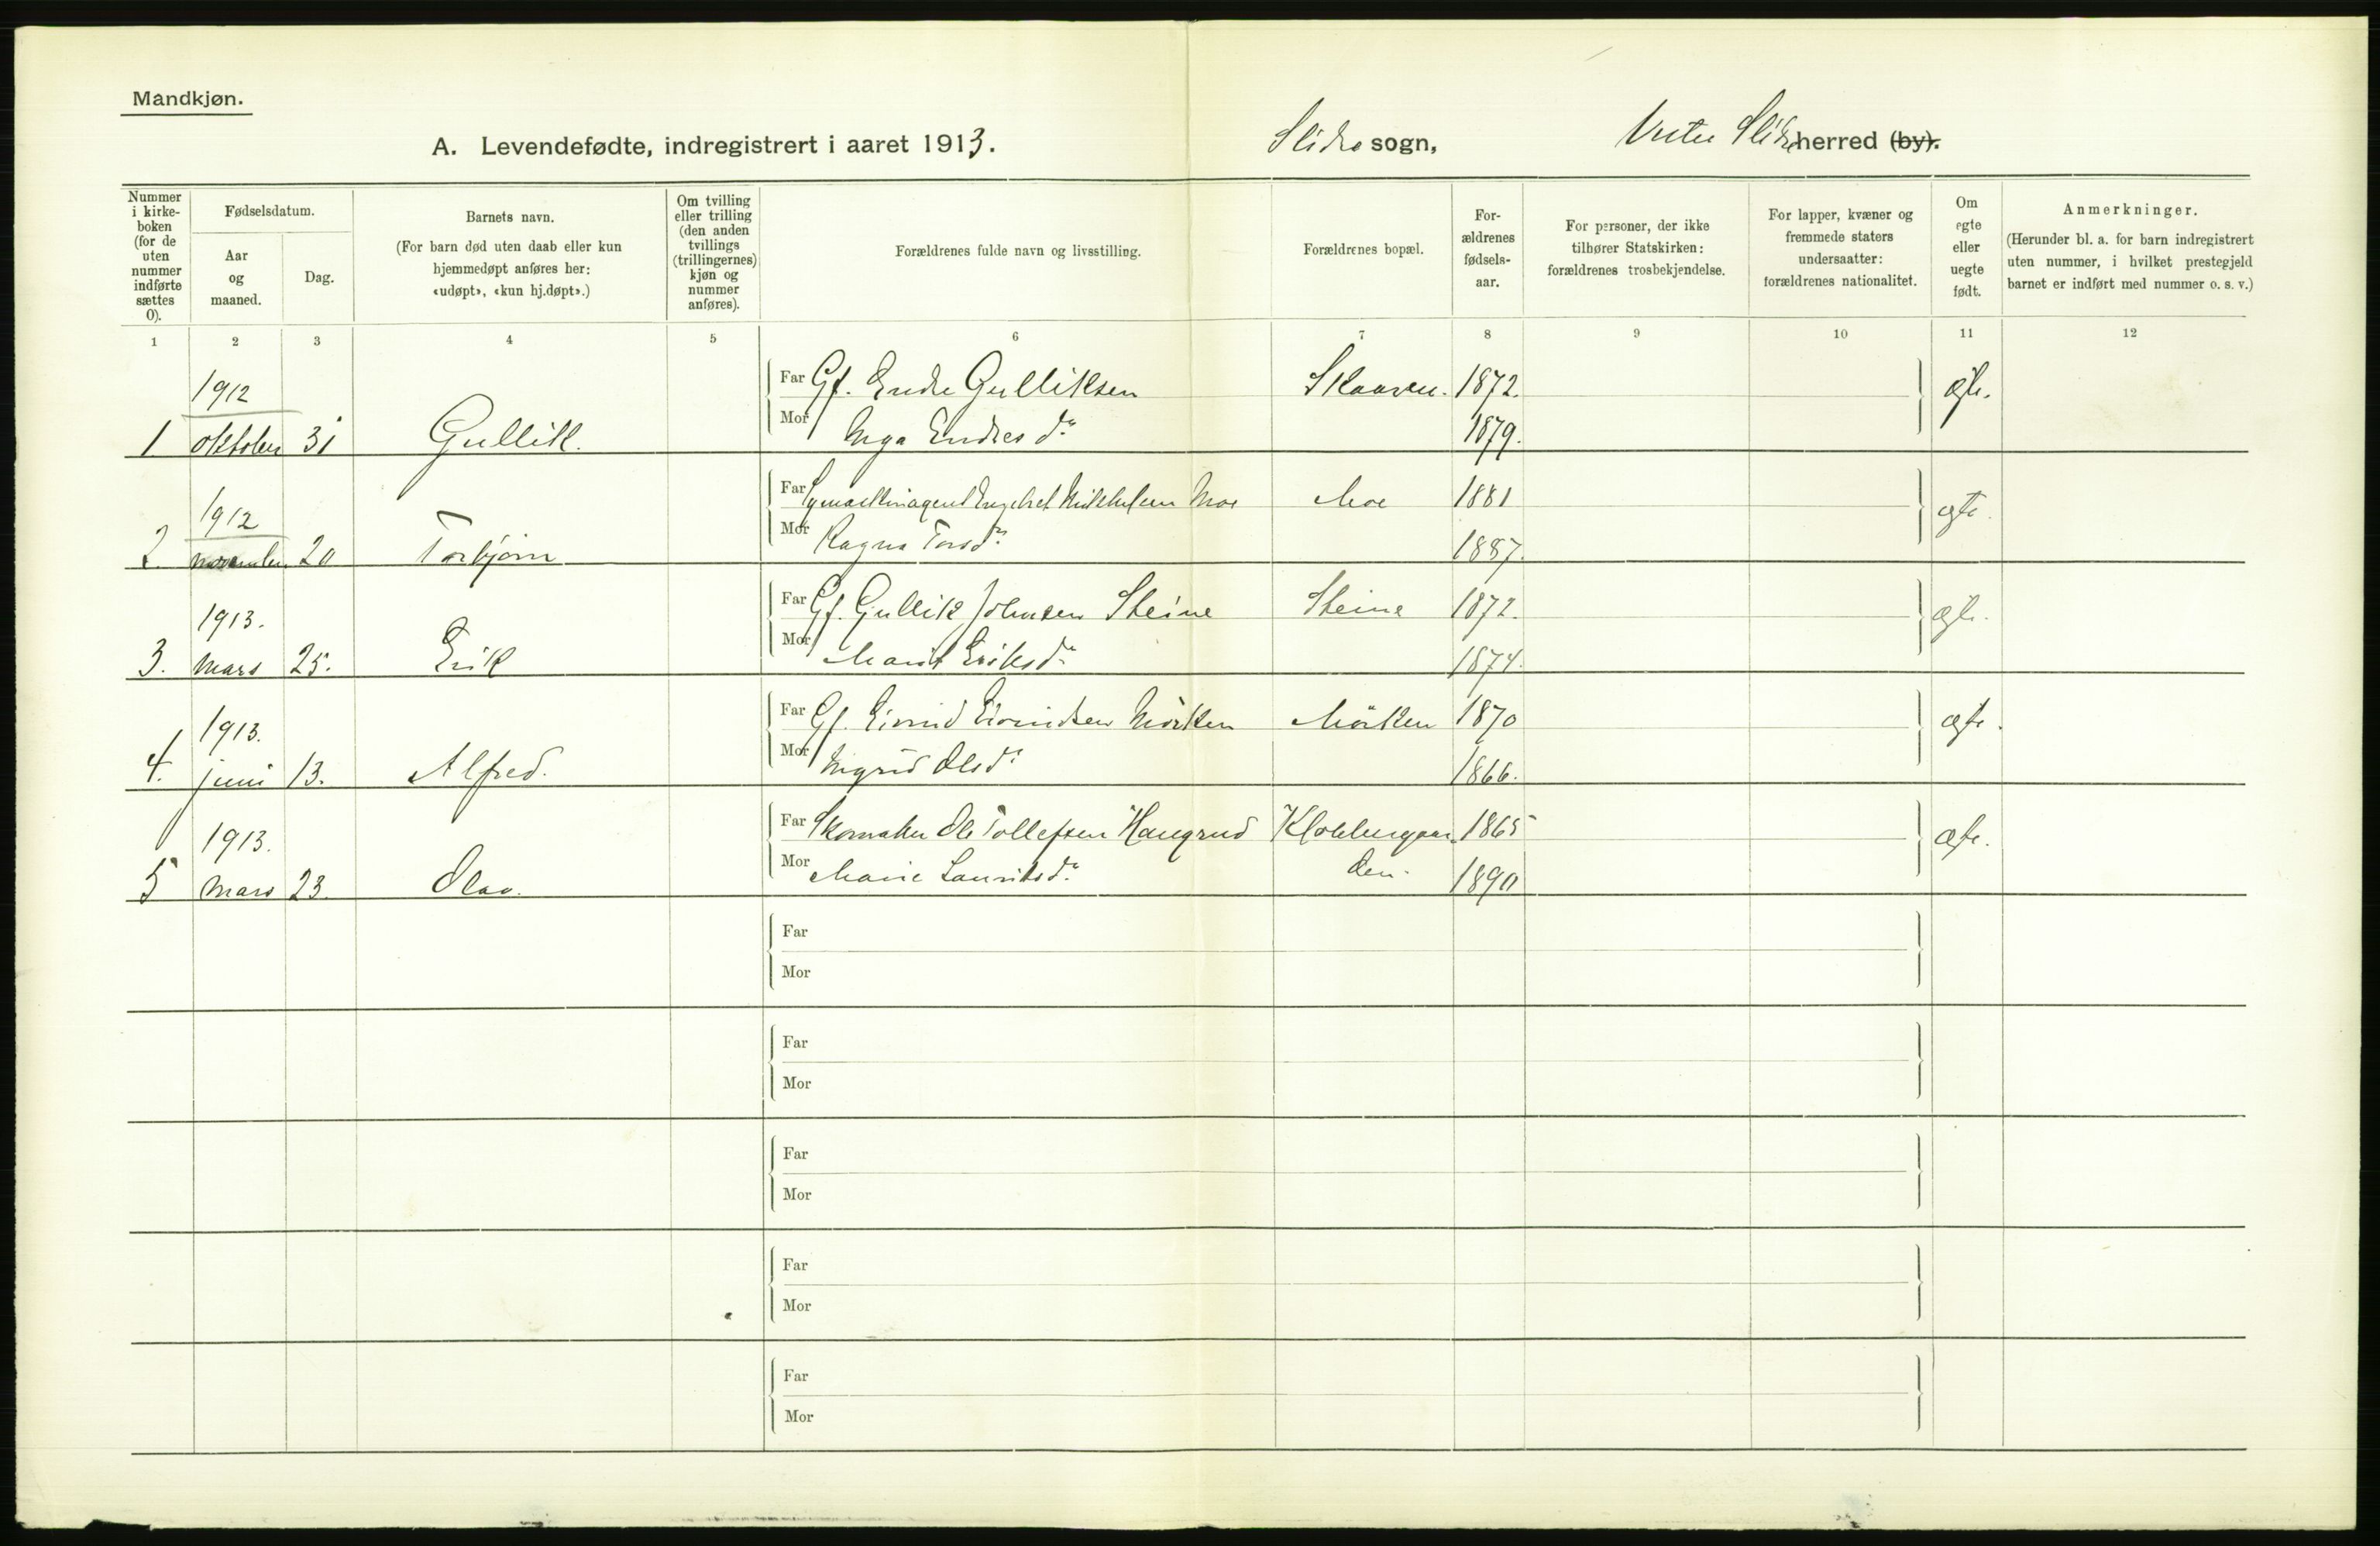 Mandkjøn.
A. Levendefødte, indregistrert i aaret 1913. Slidre sogn, Vestre Slidre herred (by).
Nummer i kirke-boken (for de uten nummer indførte sættes 0).
Fødselsdatum.
Aar og maaned.
Dag.
Barnets navn.
(For barn død uten daab eller kun hjemmedøpt anføres her: «udøpt», «kun hj.døpt».)
Om tvilling eller trilling (den anden tvillings (trillingernes) kjøn og nummer anføres).
Forældrenes fulde navn og livsstilling.
Forældrenes bopæl.
For-ældrenes fødsels-aar.
For personer, der ikke tilhører Statskirken: forældrenes trosbekjendelse.
For lapper, kvæner og fremmede staters undersaatter: forældrenes nationalitet.
Om egte eller uegte født.
Anmerkninger.
(Herunder bl. a. for barn indregistrert uten nummer, i hvilket prestegjeld barnet er indført med nummer o. s. v.)
1 2 3 4 5 6 7 8 9 10 11 12
1912 Far Gf. Endre Gulliksen Skaaren. 1872. ægte.
1 oktober 31 Gullik. Mor Inga Endresdr 1879.
1912 Far Symaskinagent Engebret Mikkelsen Moe Moe 1881 ægte.
2. november 20 Torbjørn Mor Ragna Torsdr 1887.
1913. Far Gf. Gullik Johnsen Steine Steine 1872. ægte.
3. mars 25. Erik Mor Marit Eriksdr 1874.
1913. Far Gf. Eivind Eivindsen Mörken Mörken 1870 ægte.
4. juni 13. Alfred. Mor Ingrid Olsdr 1866.
1913. Far Skomaker Ole Tollefsen Haugrud 1865 ægte.
5 mars 23. Olav. Mor Marie Lauritsdr den. 1890
Far
Mor
Far
Mor
Far
Mor
Far
Mor
Far
Mor